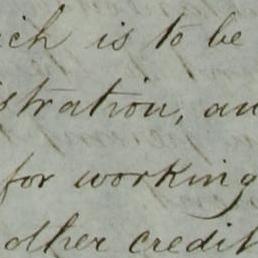 ich is to be
stration, an
for working
other credit